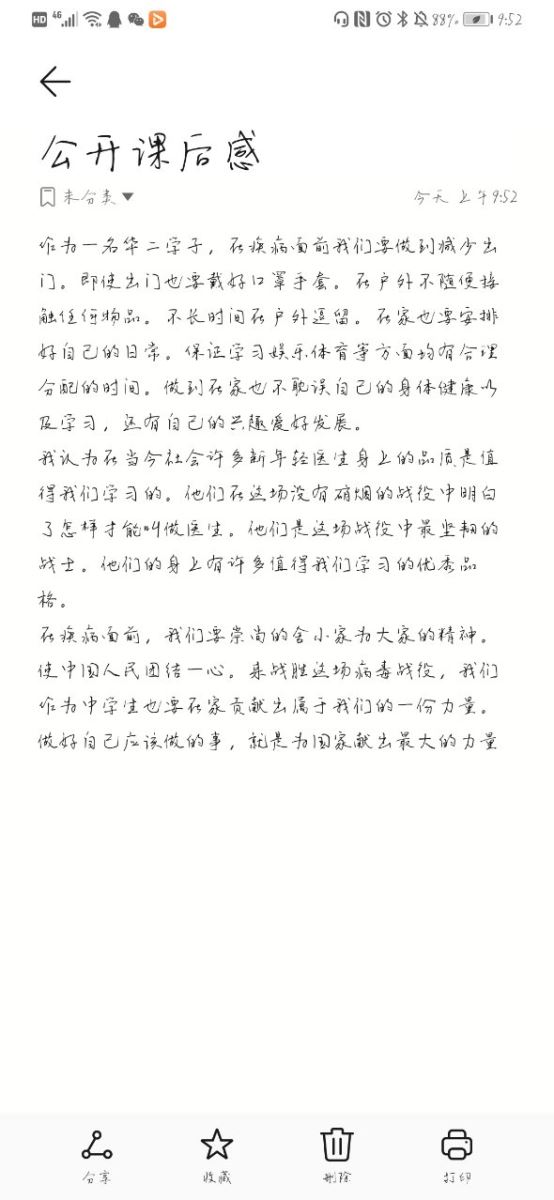 HD 4G 88% 9:52
公开课后感
未分类 今天 上午9:52
作为一名华二学子，在疾病面前我们要做到减少出
门。即使出门也要戴好口罩手套。在户外不随便接
触任何物品。不长时间在户外逗留。在家也要安排
好自己的日常。保证学习娱乐体育等方面均有合理
分配的时间。做到在家也不耽误自己的身体健康以
及学习，还有自己的兴趣爱好发展。
我认为在当今社会许多新年轻医生身上的品质是值
得我们学习的。他们在这场没有硝烟的战役中明白
了怎样才能叫做医生。他们是这场战役中最坚韧的
战士。他们的身上有许多值得我们学习的优秀品
格。
在疾病面前，我们要崇尚的舍小家为大家的精神。
使中国人民团结一心。来战胜这场病毒战役，我们
作为中学生也要在家贡献出属于我们的一份力量。
做好自己应该做的事，就是为国家献出最大的力量
分享 收藏 删除 打印